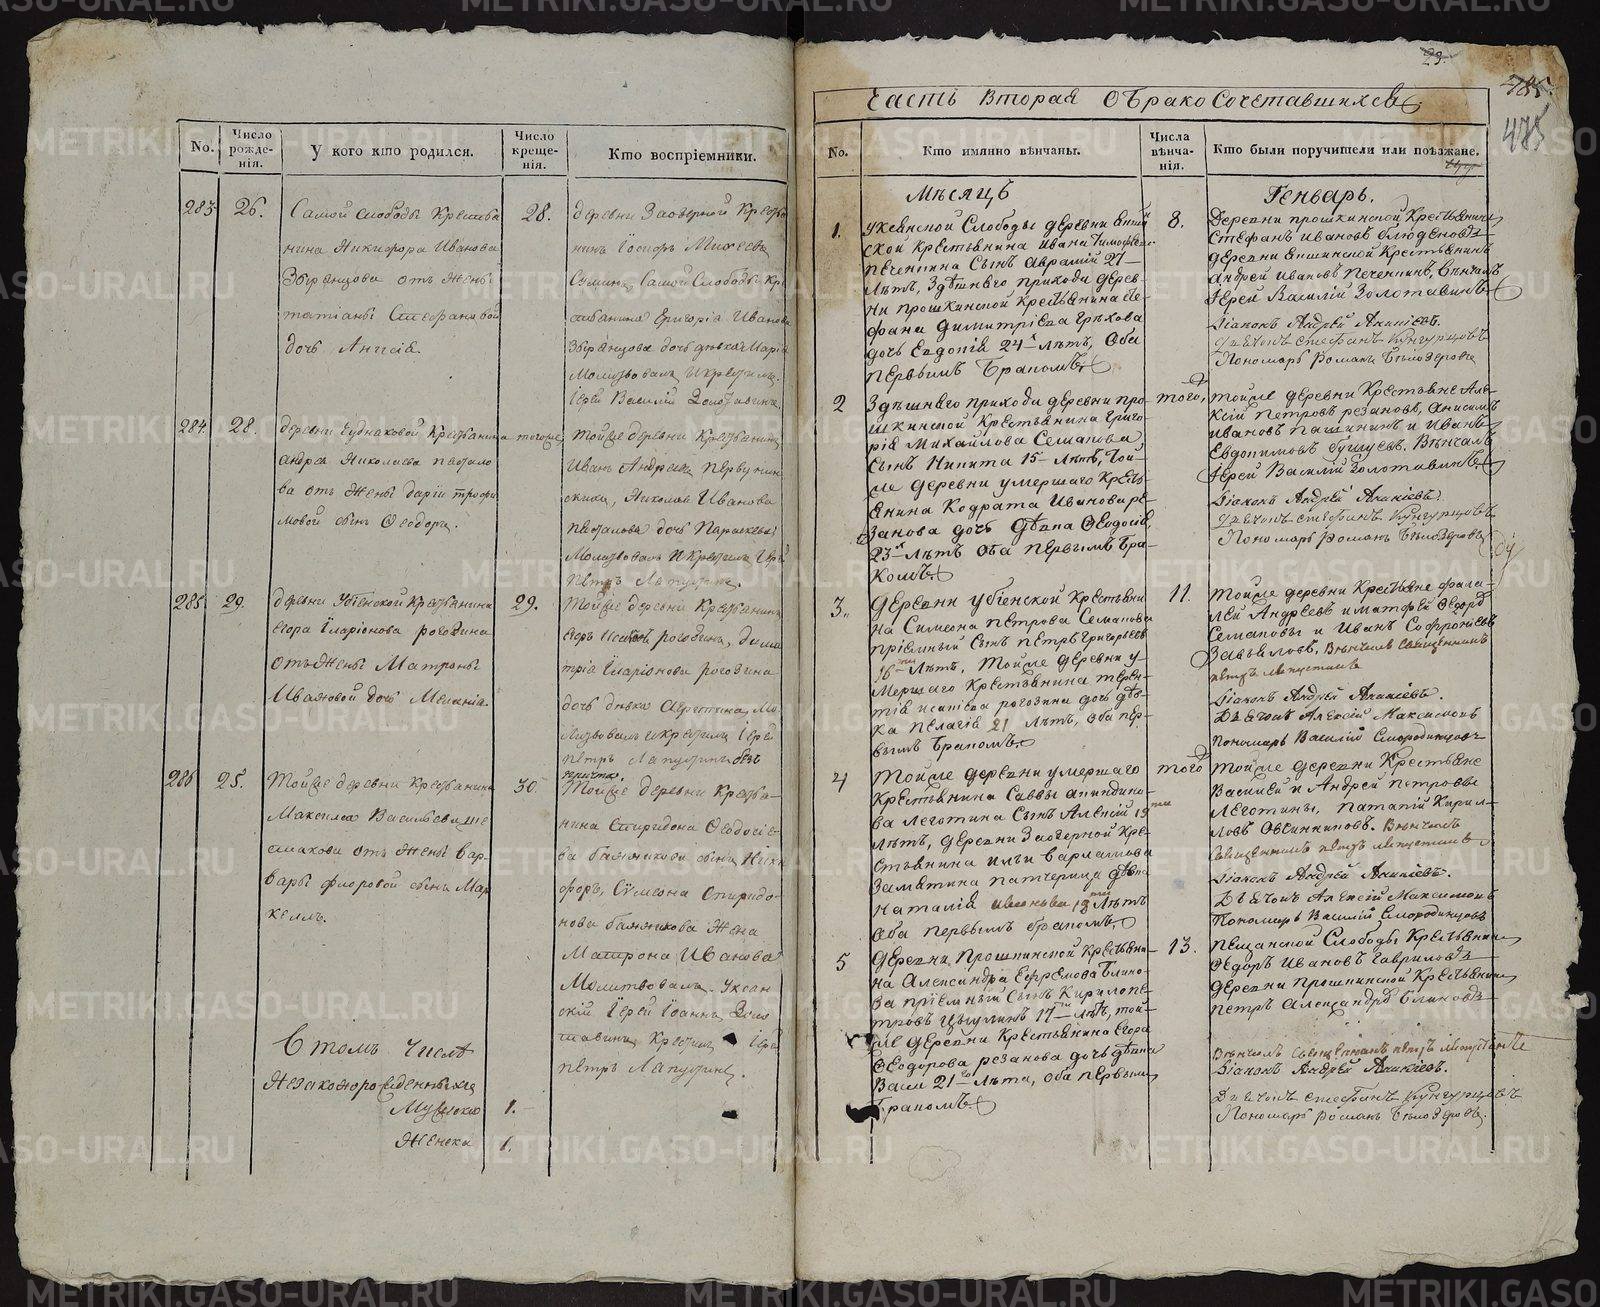 No.
Число рожде-нія.
У кого кто родился.
Число креще-нія.
Кто воспріемники.
283
26.
Самой слободы Кресть
нина Никифора Иванова
Збранцова отъ жены
татіаны Стефановой
дочь Анисія
28.
деревни Заозерной Крестья
нинъ Іосифъ Михеевъ
Самой Слободы Кре
стьянина Григорія Иванова
Збранцова дочь дѣвка Марія
Молитвовалъ и крестилъ
Іерей Василій Золотавинъ
284.
28.
деревни Чуднаковой Крестьянина
андрея Николаева
ва отъ жены даріи трофи
мовой сынъ Ѳеодоръ.
тогоже
тойже деревни Крестьянинъ
Иванъ Андреевъ
Николая Иванова
дочь Параскева
Молитвовалъ и Крестилъ Іерей
петръ Лапустинъ.
285
29.
деревни Убіенской Крестьянина
егора Иларіонова рогозина
отъ жены Матроны
Ивановой дочь Меланія.
29.
Тойже деревни Крестьянинъ
рогозинъ, дими
трія Иларіонова рогозина
дочь дѣвка
литвовалъ и крестилъ Іерей
петръ Лапустинъ безъ
причта.
286
25.
Тойже деревни Крестьянина
Максима Васильева ше
макова отъ жены вар
вары флоровой сынъ Мар
келлъ.
30.
Тойже деревни Крестья-
нина Спиридона Ѳеодосіе-
ва сынъ Ники
форъ, Симеона Спиридо-
нова жена
Матрона Иванова
Молитвовалъ Уксян
скій Іерей Іоаннъ Золо
тавинъ Крестилъ Іерей
петръ Лапустинъ.
Въ томъ числѣ
Незаконорожденныхъ
Мужеска 1.
Женска 1.
29.
185.
475
Часть вторая о бракосочетавшихся
No.
Кто имянно вѣнчаны.
Числа вѣнча-нія.
Кто были поручители или поѣзжане.
Мѣсяцъ
Генварь.
1.
уксянской Слободы деревни
ской Крестьянина ивана тимофеева
печенкина Сынъ Аврамій 27
лѣтъ, Здѣшняго прихода дерев-
ни прошкинской Крестьянина Сте-
фана Димитріева грѣхова
дочь Евдокія 24 лѣтъ, оба
первымъ бракомъ.
8.
Деревни прошкинской Крестьянинъ
Стефанъ ивановъ
деревни Крестьянинъ
андрей ивановъ печенкинъ, Вѣнчалъ
Іерей Василій Золотавинъ
діаконъ Андрей Аникіевъ.
дьячокъ стефанъ Кунгурцовъ
Пономарь романъ Бѣлозеровъ
2
Здѣшняго прихода деревни про-
шкинской Крестьянина григо-
рія Михайлова Семакова
Сынъ Никита 15 лѣтъ, той-
же деревни умершаго Кресть
янина Кодрата Иванова ре-
занова дочь дѣвка Ѳеодосія,
23 лѣтъ оба первымъ бра-
комъ.
того,
тойже деревни Крестьяне Але-
ксій петровъ резановъ, Онисимъ
ивановъ пашнинъ и иванъ
Евдокимовъ бушуевъ. Вѣнчалъ
Іерей Василій Золотавинъ,
діаконъ Андрей Аникіевъ
дьячокъ стефанъ Кунгурцовъ
Пономарь романъ Бѣлозеровъ
3.
деревни убіенской Крестьяни
на Симеона петрова Семакова
пріемный сынъ петръ григорьевъ
16 лѣтъ, тойже деревни у-
мершаго Крестьянина терен-
тія рогозина дочь дѣв-
ка пелагія 21 лѣтъ, оба пер-
вымъ бракомъ.
11.
тойже деревни Крестьяне фала-
лей Андреевъ и матфей Ѳеодор
Семаковы и Иванъ Софроніевъ
Завьяловъ, Вѣнчалъ священникъ
петръ лапустинъ
діаконъ Андрей Аникіевъ.
Дьячокъ Алексій Максимовъ
пономарь Василій Смородинцовъ
4
тойже деревни умершаго
Крестьянина Саввы
ва леготина Сынъ Алексій 19
лѣтъ, деревни Заозерной Кре-
стьянина ильи варламова
Замятина падчерица дѣвка
наталія иванова 19 лѣтъ
оба первымъ бракомъ.
того
тойже деревни Крестьяне
Василей и Андрей петровы
леготины, патапій Кирил-
ловъ Овчинниковъ. Вѣнчалъ
священникъ петръ лапустинъ
діаконъ Андрей Аникіевъ.
Дьячокъ Алексій Максимовъ
Пономарь Василій Смородинцовъ
5
деревни прошкинской Крестьяни-
на Александра Ефремова блино-
ва пріемный Сынъ Кирилопе-
тровъ 17 лѣтъ, той-
же деревни Крестьянина Егора
Ѳеодорова резанова дочь дѣвка
Васса 21 лѣта, оба первымъ
бракомъ
13.
пещанской Слободы Крестьянинъ
Ѳедоръ ивановъ гавриловъ
деревни прошкинской Крестьянинъ
петръ Александровъ блиновъ
Вѣнчалъ священникъ петръ лапустинъ
діаконъ Андрей Аникіевъ.
Дьячокъ стефанъ Кунгурцовъ
Пономарь романъ Бѣлозеровъ.
METRIKI.GASO-URAL.RU